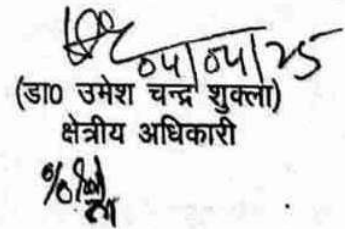 04/04/25
(डा0 उमेश चन्द्र शुक्ला)
क्षेत्रीय अधिकारी